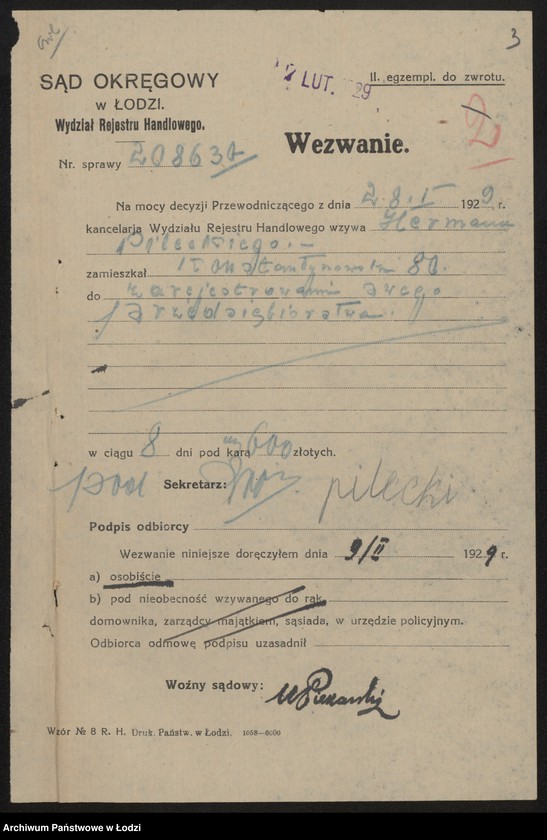 3
SĄD OKRĘGOWY
w ŁODZI.
Wydział Rejestru Handlowego.
LUT. 29
II. egzempl. do zwrotu.
2
Wezwanie.
Nr. sprawy 20863
Na mocy decyzji Przewodniczącego z dnia 28.I 1929 r.
kancelarja Wydziału Rejestru Handlowego wzywa Hermana
Pileckiego.–
zamieszkał Konstantynowska 80.
do zarejestrowania swego
przedsiębiorstwa.
w ciągu 8 dni pod karą 600 złotych.
pod Sekretarz: pilecki
Podpis odbiorcy
Wezwanie niniejsze doręczyłem dnia 9/II 1929 r.
a) osobiście
b) pod nieobecność wzywanego do rąk
domownika, zarządcy majątkiem, sąsiada, w urzędzie policyjnym.
Odbiorca odmowę podpisu uzasadnił
Woźny sądowy:
Wzór № 8 R. H. Druk. Państw. w Łodzi. 1058—6000
Archiwum Państwowe w Łodzi